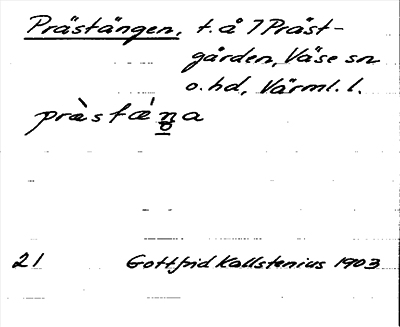 Prästängen, t. å 7 Präst-
gården, Väse sn
o. hd, Värml. l.
præ̀stæ̀ṉa
21 Gottfrid Kallstenius 1903